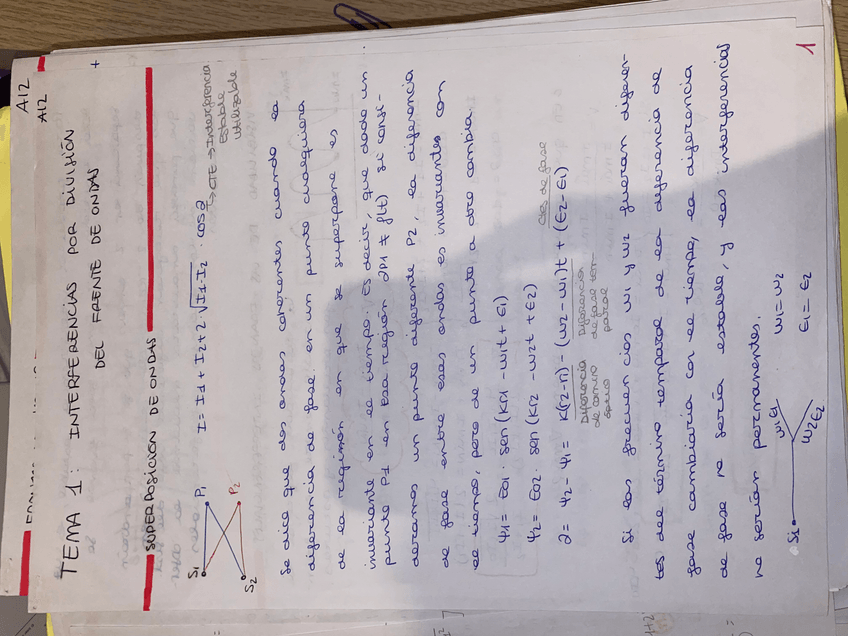 A12
A12
TEMA 1: INTERFERENCIAS POR DIVISIÓN
DEL FRENTE DE ONDAS
+
SUPERPOSICIÓN DE ONDAS
S1
P1
S2
P2
I = I1 + I2 + 2·√I1·I2 · cos∂
↳ CTE → Interferencia
estable
utilizable
Se dice que dos ondas coherentes cuando la
diferencia de fase en un punto cualquiera
de la región en que se superpone es
invariante en el tiempo. Es decir, que dado un
punto P1 en esa región ∂P1 ≠ f(t) si consi-
deramos un punto diferente P2, la diferencia
de fase entre esas ondas es invariantes con
el tiempo, pero de un punto a otro cambia.
Ψ1 = E01 · sen(Kr1 - w1t + ε1)
Ψ2 = E02 · sen(Kr2 - w2t + ε2)
Ctes de fase
∂ = Ψ2 - Ψ1 = K(r2-r1) - (w2-w1)t + (ε2-ε1)
Diferencia
de camino
óptico
Diferencia
de fase tem-
poral
Si las frecuencias w1 y w2 fueran diferen-
tes del término temporal de la diferencia de
fase cambiaría con el tiempo, la diferencia
de fase no sería estable, y las interferencias
no serían permanentes.
S1
w1 ε1
w2 ε2
w1 = w2
ε1 = ε2
1